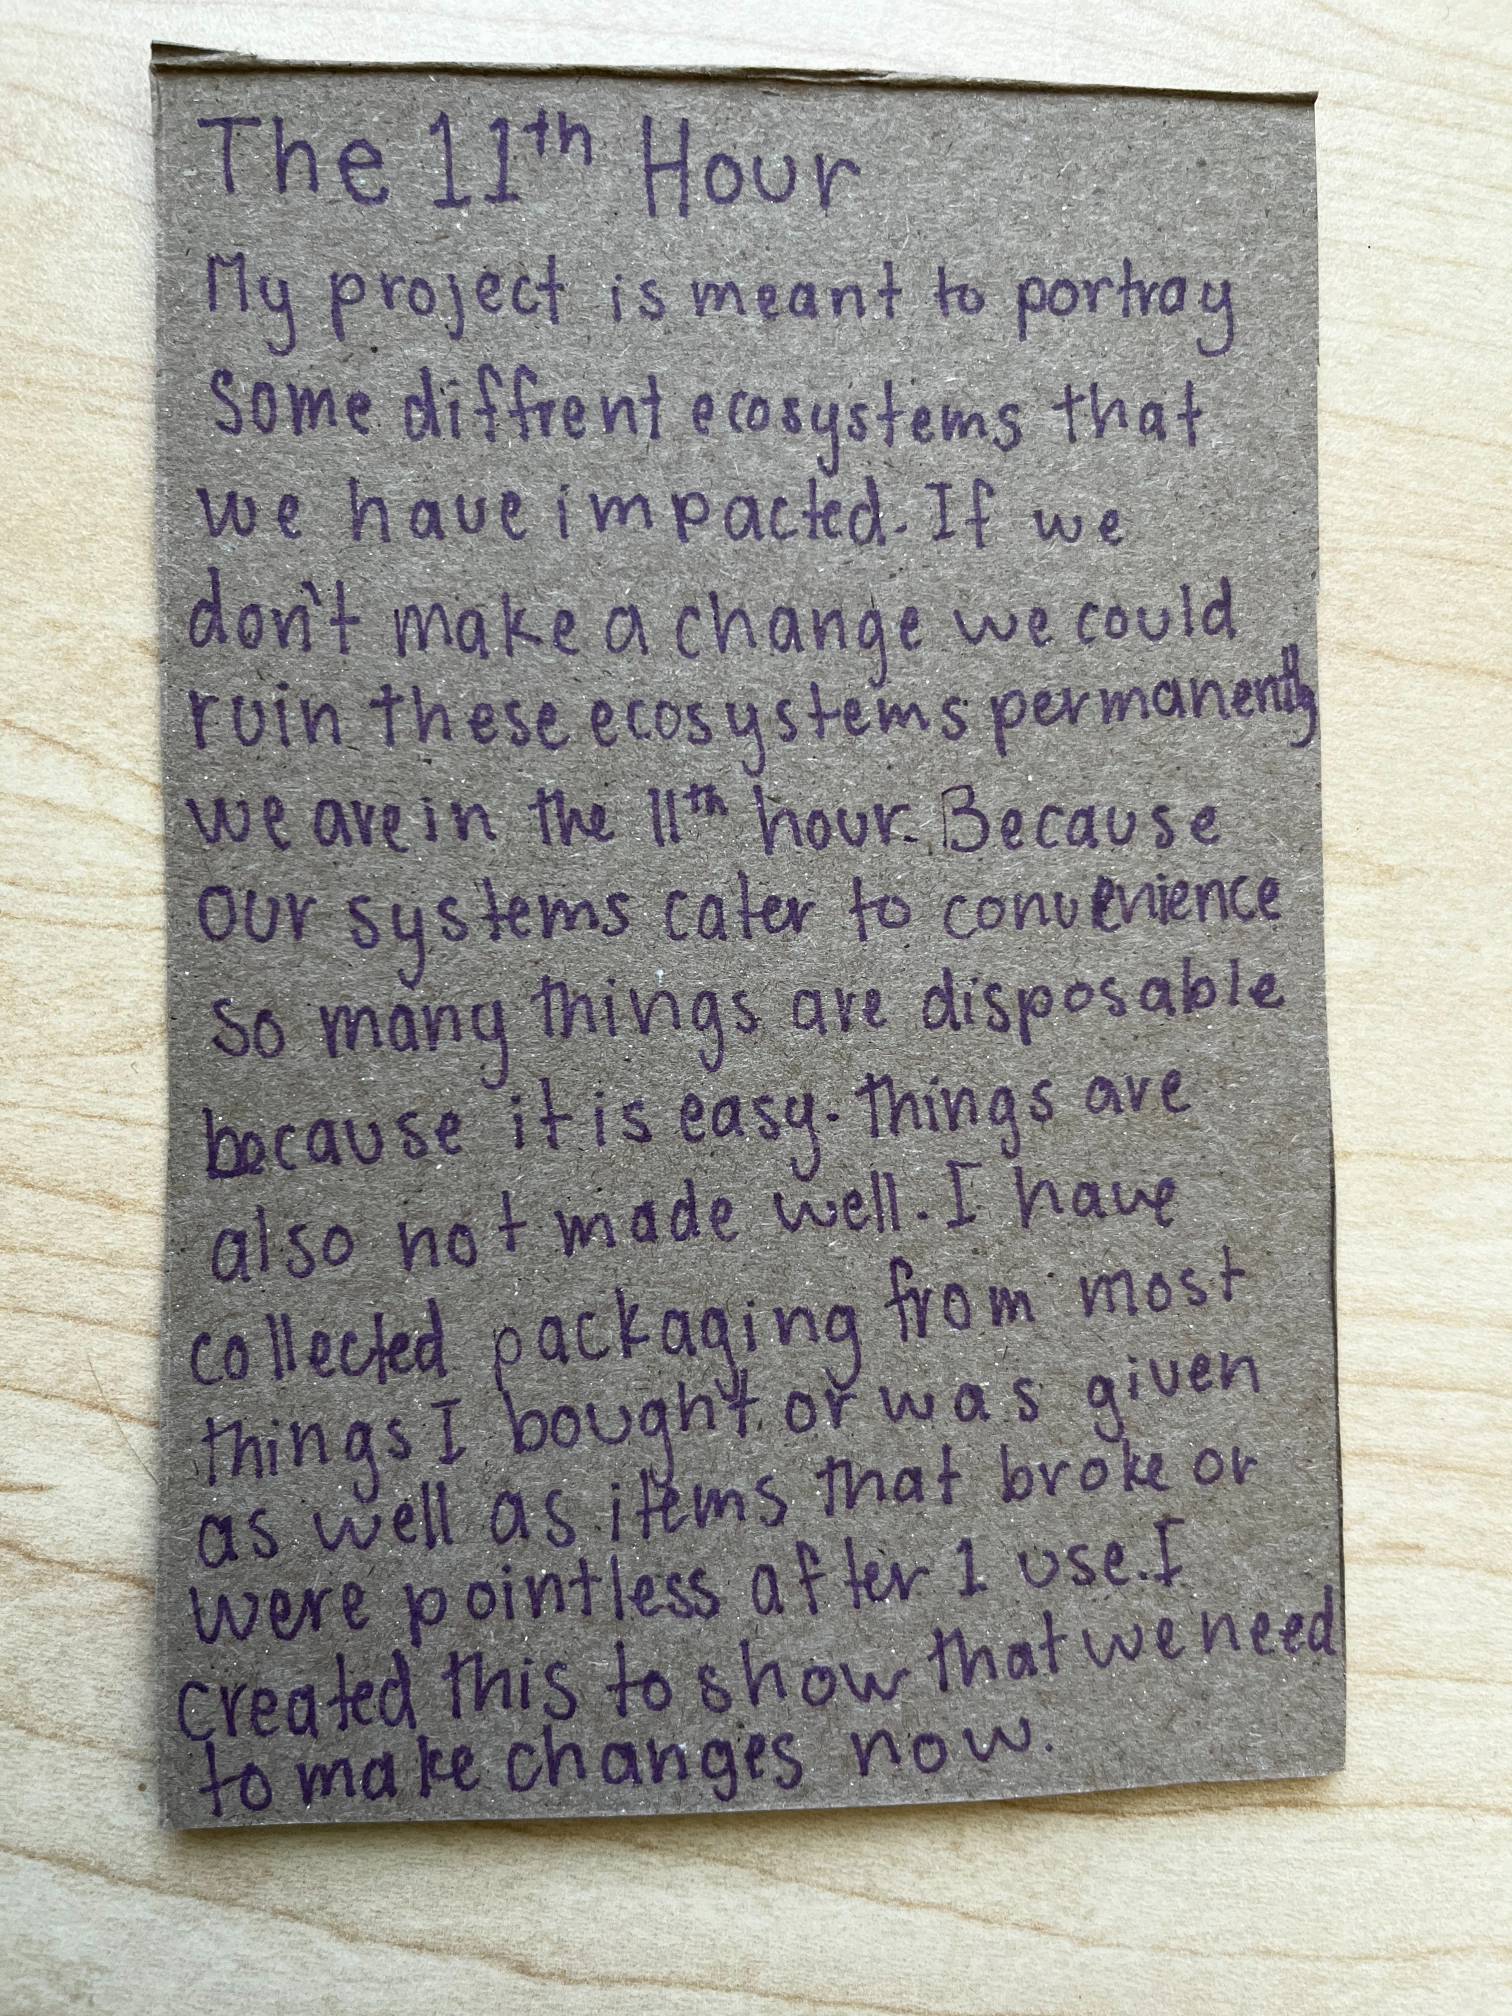 The 11th Hour
My project is meant to portray
some diffrent ecosystems that
we have impacted. If we
don't make a change we could
ruin these ecosystems permanently
we are in the 11th hour. Because
our systems cater to convenience
so many things are disposable
because it is easy. Things are
also not made well. I have
collected packaging from most
things I bought or was given
as well as items that broke or
were pointless after 1 use. I
created this to show that we need
to make changes now.